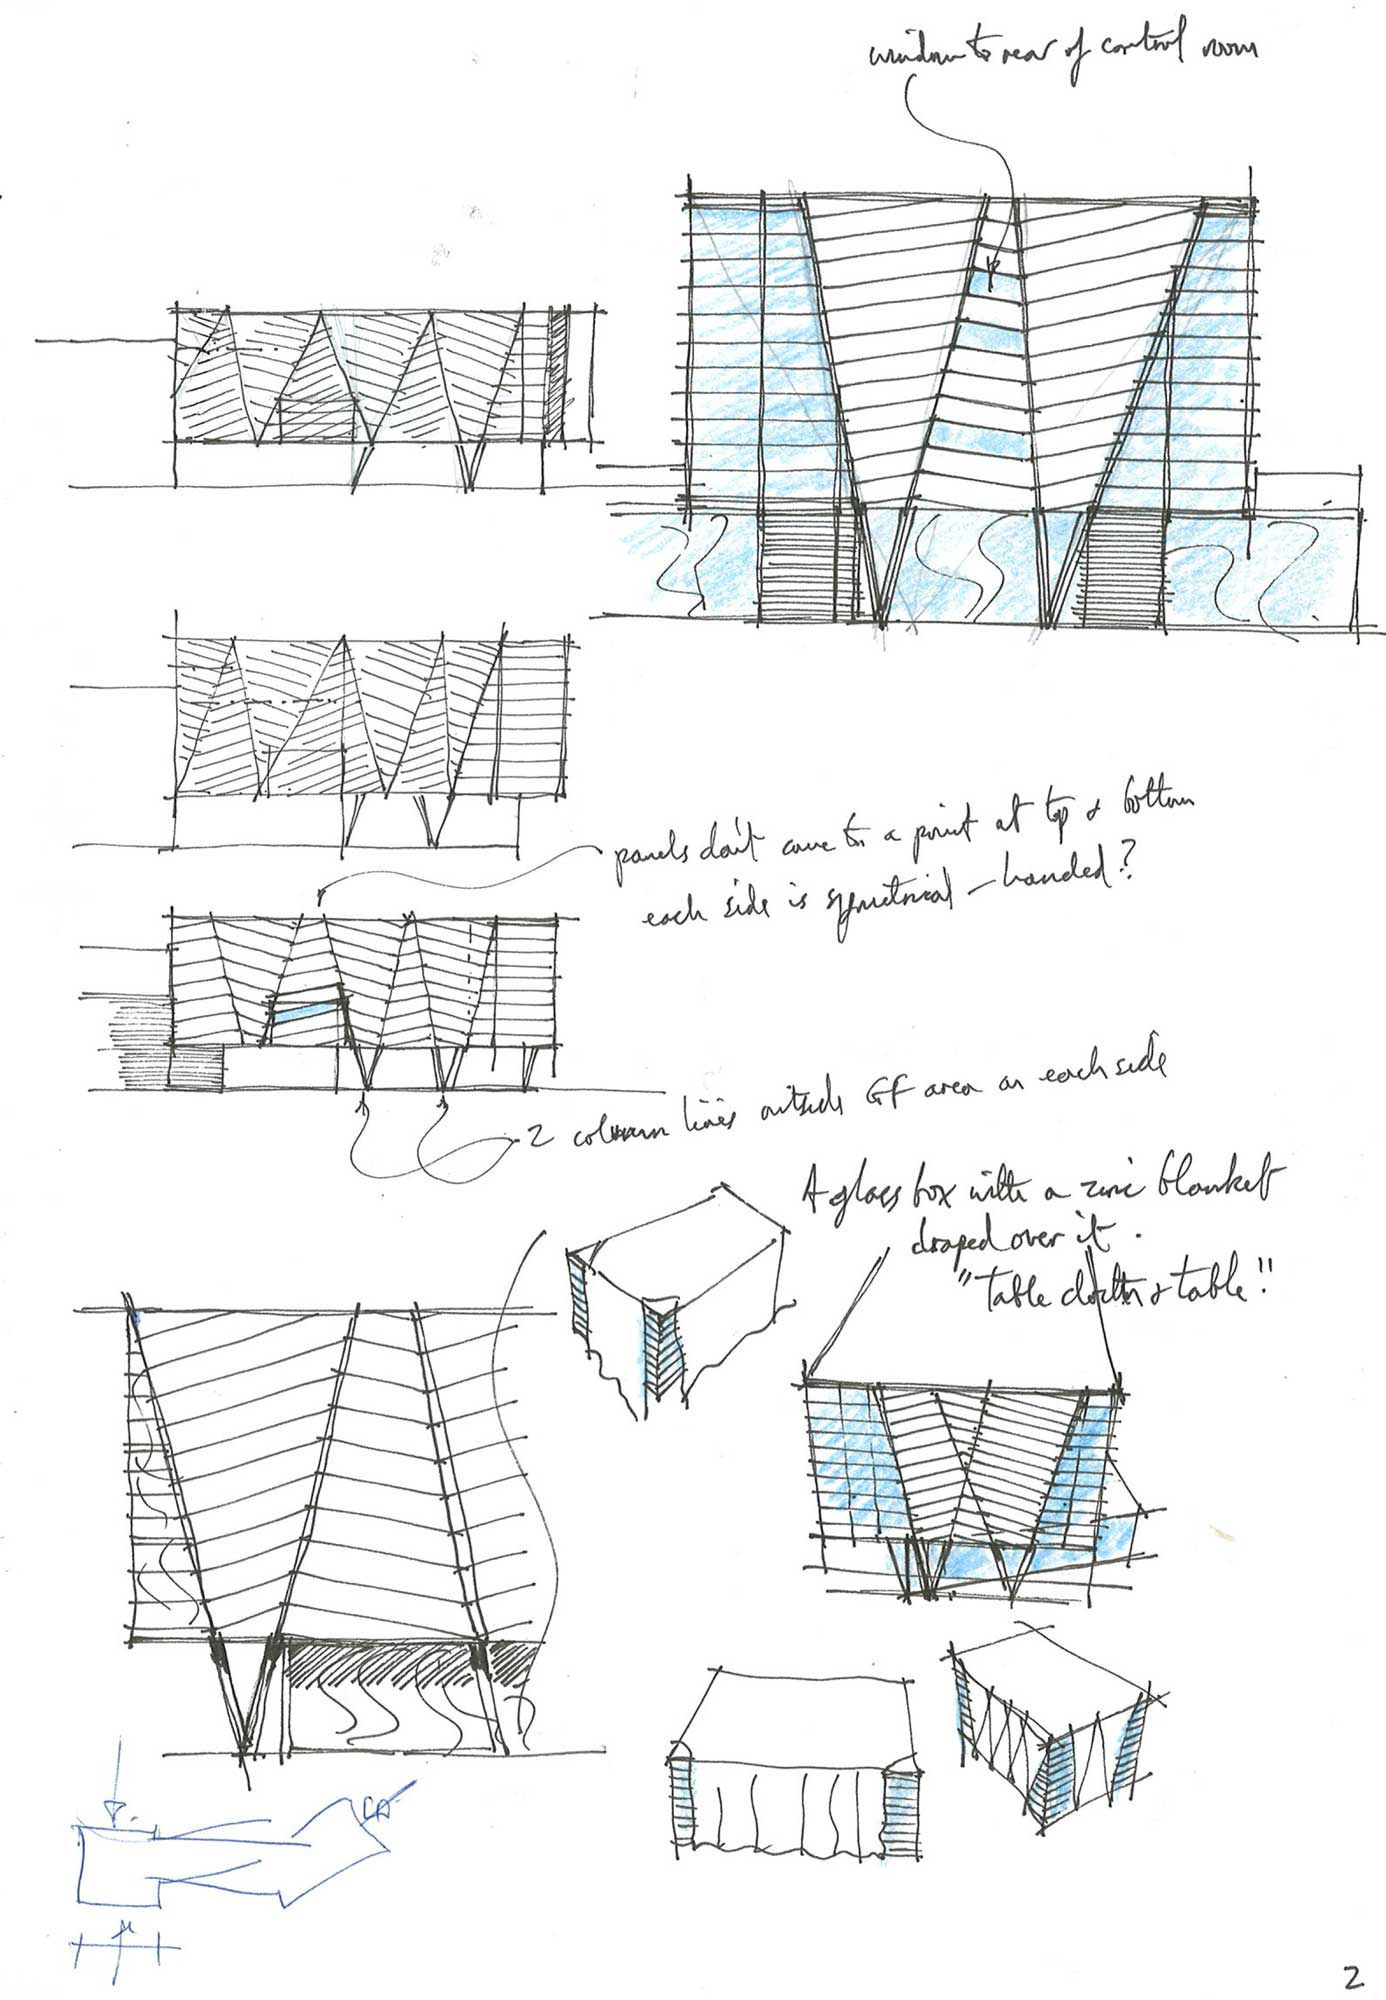 window to rear of control room
panels don't come to a point at top & bottom
each side is symetrical - handed?
2 column lines outside GF area on each side
A glass box with a zinc blanket
draped over it.
"Table cloth & table!"
2